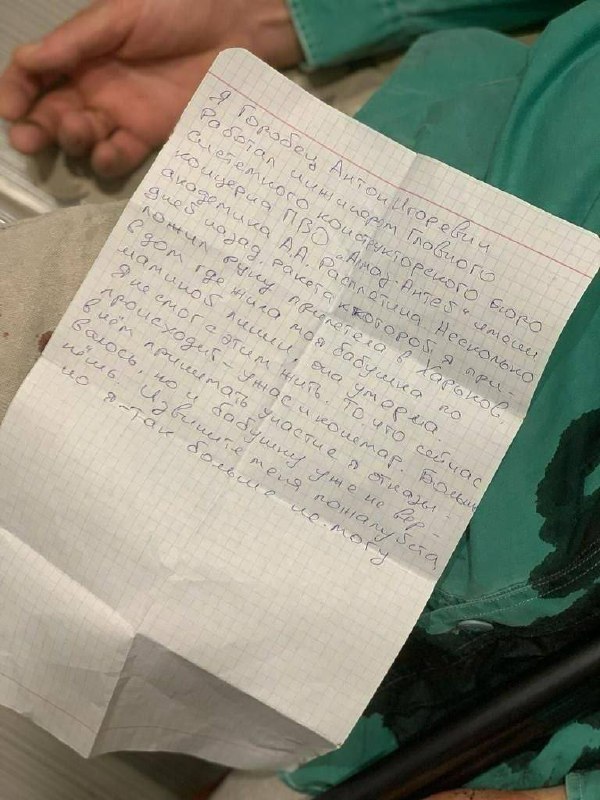 Я Горобец Антон Игоревич
Работал инжинером Главного
системного конструкторского бюро
концерна ПВО „Алмаз-Антей“ имени
академика А.А. Расплетина. Несколько
дней назад ракета к которой я при-
ложил руку прилетела в Харьков,
в дом где жила моя бабушка по
маминой линии, она умерла.
Я не смог с этим жить. То что сейчас
происходит – ужас и кошмар. Больше
в нём принимать участие я отказы-
ваюсь, но и бабушку уже не вер-
нёшь. Извините меня пожалуйста,
но я – так больше не могу